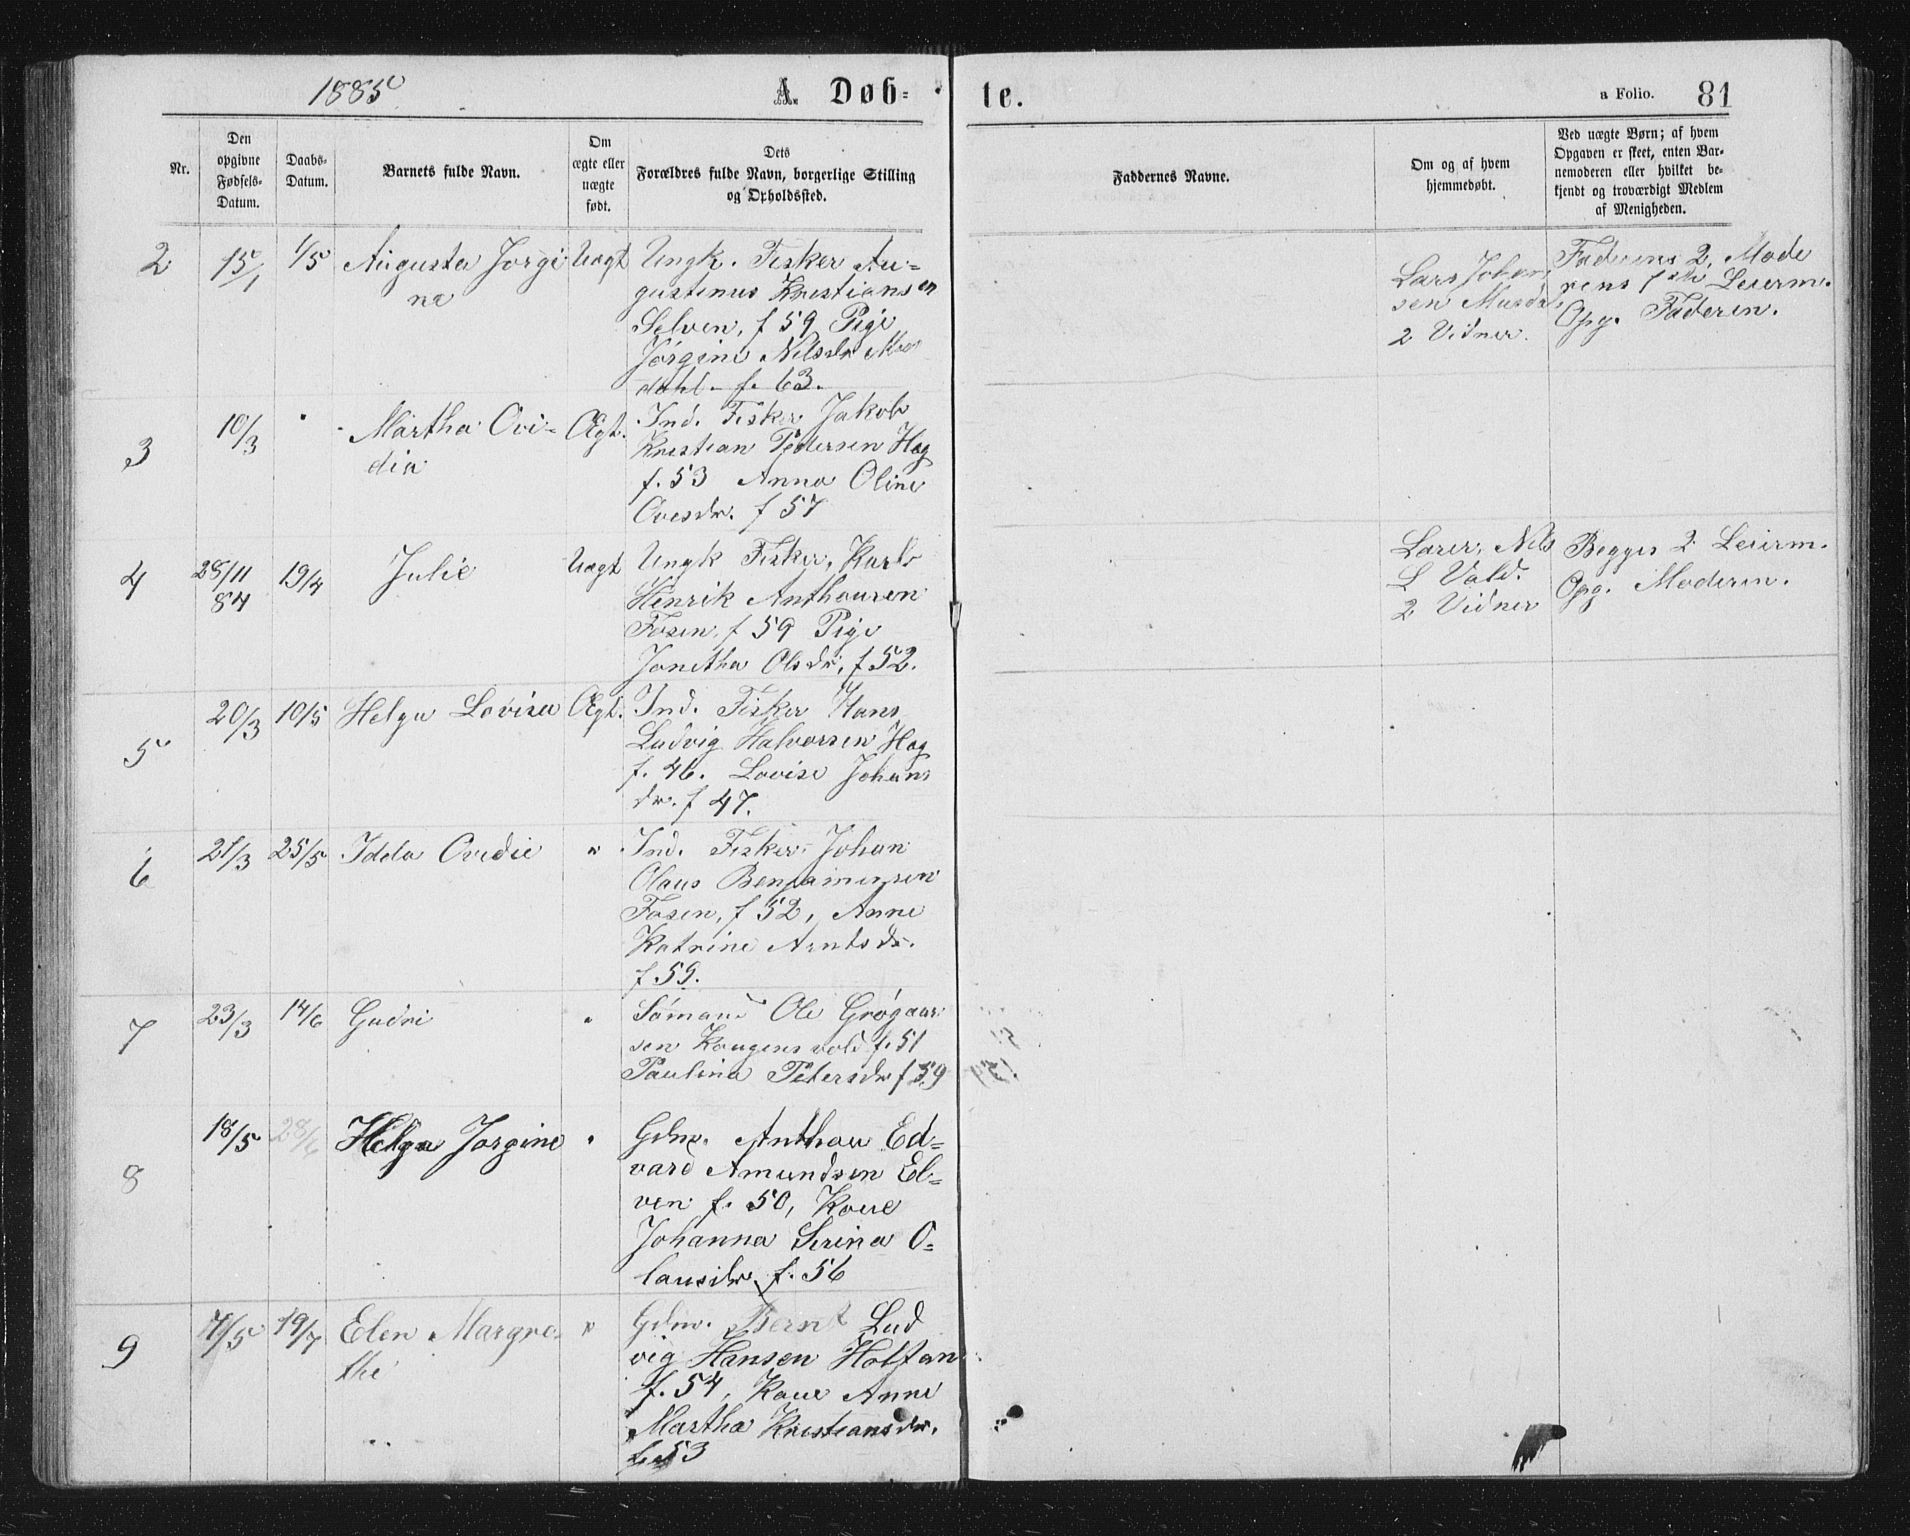 1885
A. Døb-
te.
a Folio.
81
Nr.
Den
opgivne
Fødsels-
Datum.
Daabs-
Datum.
Barnets fulde Navn.
Om
ægte eller
uægte
født.
Dets
Forældres fulde Navn, borgerlige Stilling
og Opholdssted.
Faddernes Navne.
Om og af hvem
hjemmedøbt.
Ved uægte Børn; af hvem
Opgaven er skeet, enten Bar-
nemoderen eller hvilket be-
kjendt og troværdigt Medlem
af Menigheden.
2 15/1 1/5 Augusta Jorgi- Uægt Ungk. Fisker Au-
ne gustinus Kristiansen
Selven, f 59 Pige
Jörgine Nilsdr
dahl - f. 63.
Lars Johan
sen
2 Vidner.
Faderens 2, Mode
rens 1ste Leierm.
Opg. Faderen.
3 10/3 Martha Ovi- Ægt. Ind. Fisker Jakob
dia Kristian Pedersen Hag
f. 53 Anna Oline
Ovesdr. f 57
4 28/11 84 19/4 Julie Uægt Ungk Fisker, Karl
Henrik Anthonsen
Fosen, f 59 Pige
Jonetha Olsdr, f 52.
Lærer, Nils
L Vald.
2 Vidner
Begges 2 Leierm.
Opg. Moderen.
5 20/3 10/5 Helga Lovisa Ægt. Ind. Fisker Hans
Ludvig Halvorsen Hag
f. 46. Lovise Johans
dr. f 47.
6 21/3 25/5 Idela Ovedie " Ind. Fisker Johan
Olaus Benjaminsen
Fosen, f 52, Anne
Katrine Arntsdr.
f 59.
7 23/3 14/6 Gudri " Sömand Ole Grögaar
sen Kongensvold f. 51
Paulina Petersdr f 59
8 18/5 28/6 Helga Jorgine " Gdm. Anthon Ed-
vard Amundsen El-
ven f. 50, Kone
Johanna Serina O-
lausdr f. 56
9 19/7 Elen Margre- " Gdm. Bernt Lud
the vig Hansen Holstan
f. 54, Kone Anne
Martha Kristiansdr.
f. 53